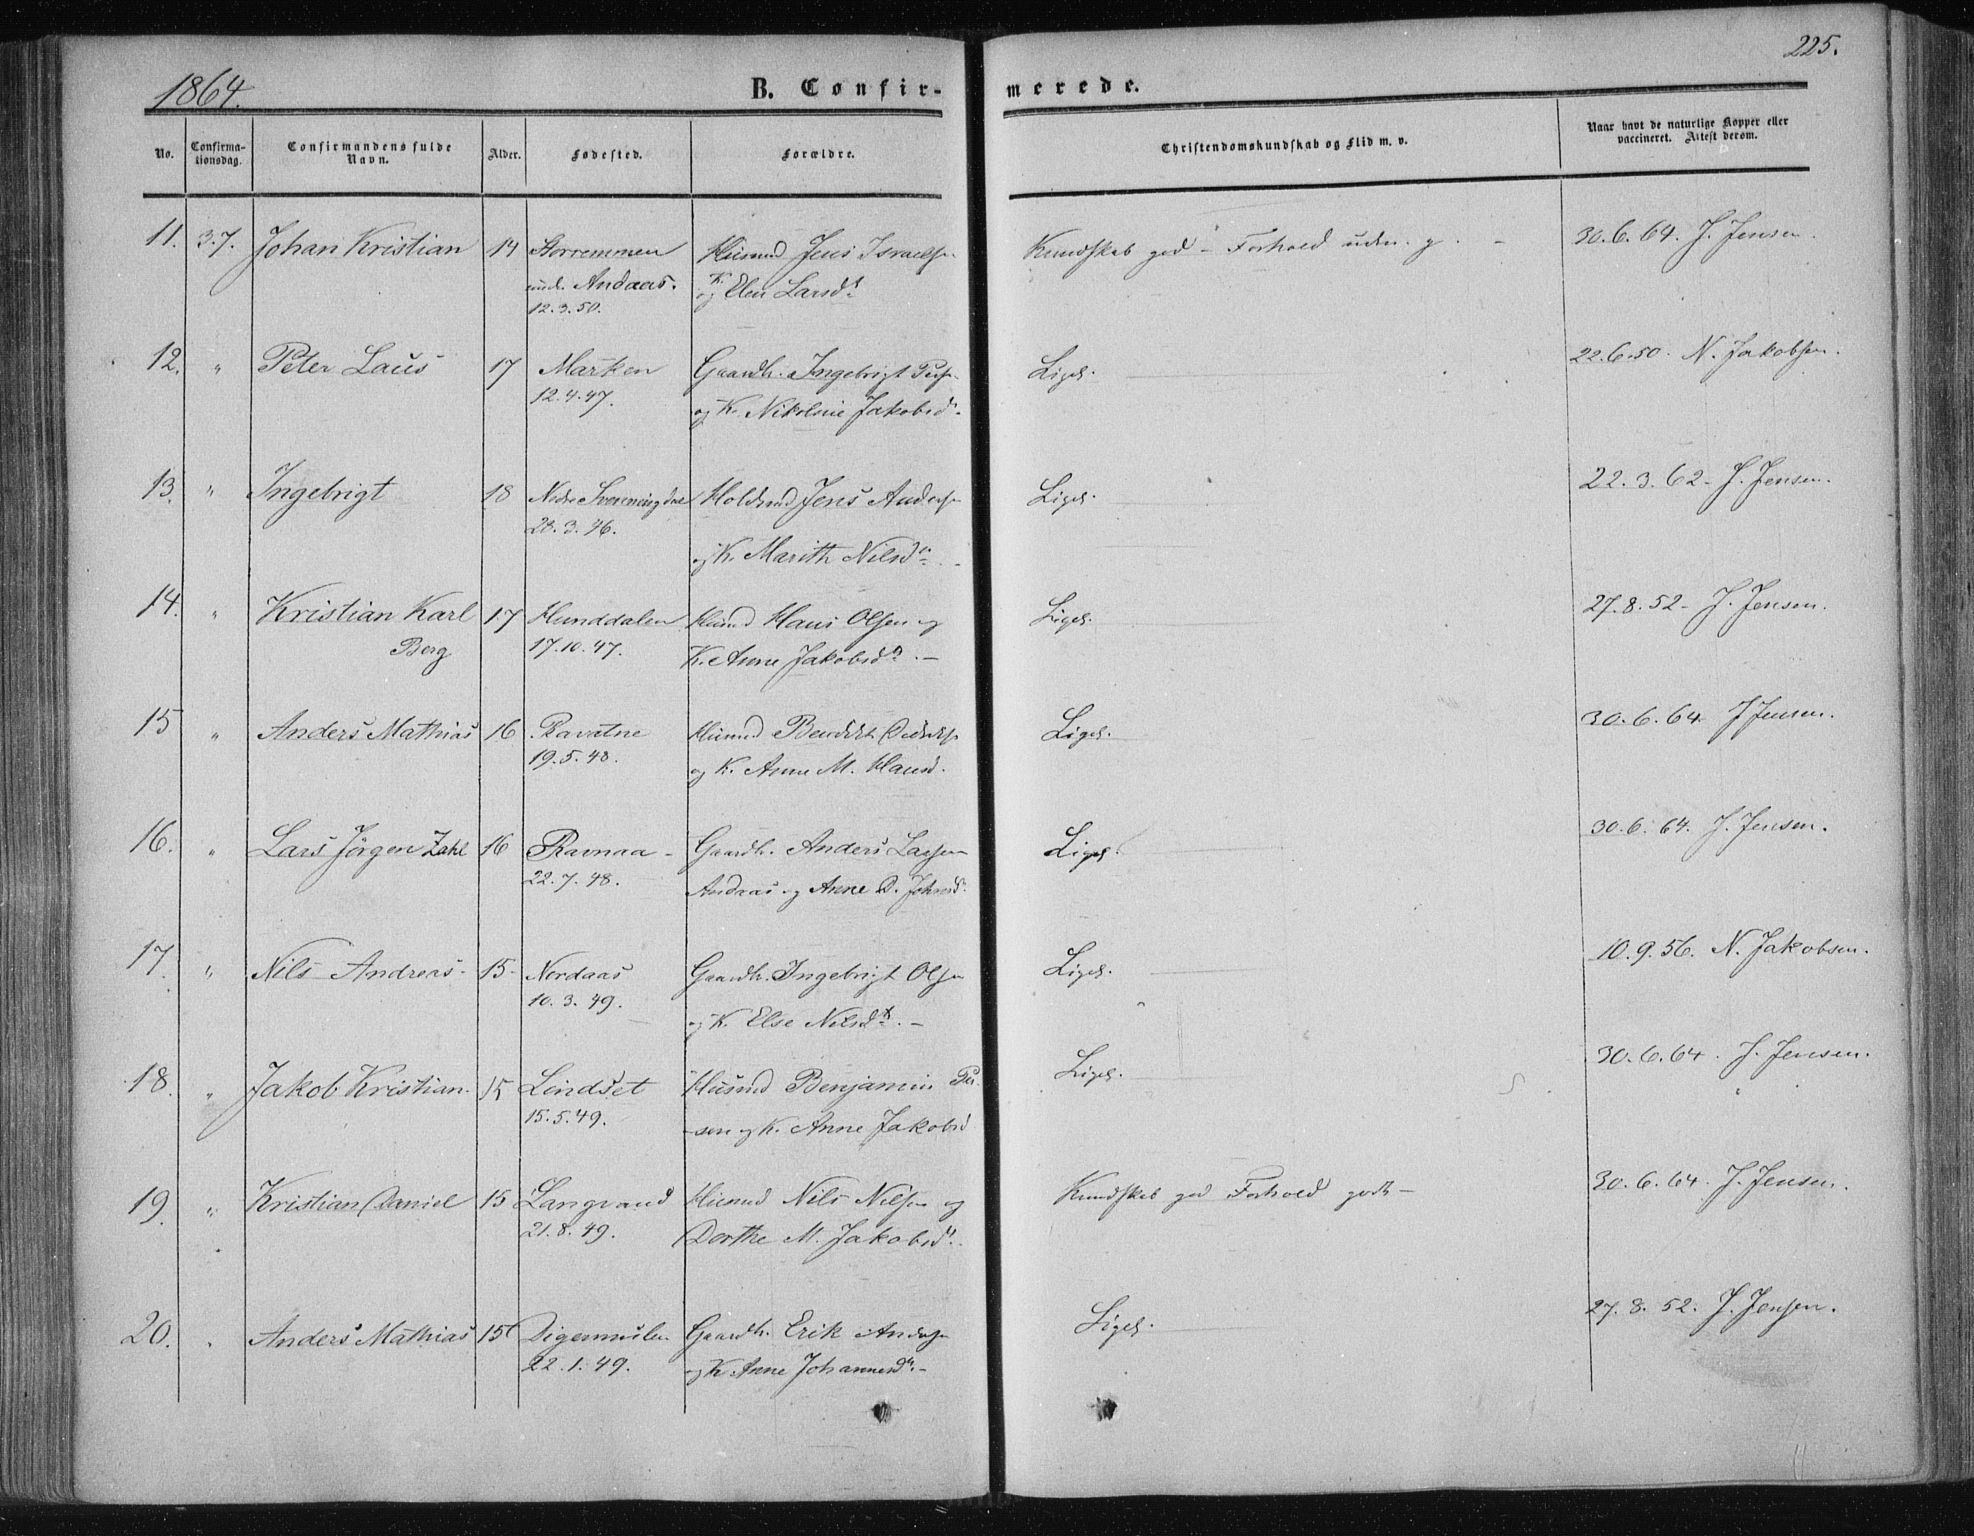 1864.
B. Confir-
merede.
225.
No.
Confirma-
tionsdag.
Confirmandens fulde
Navn.
Alder.
Fødested.
Forældre.
Christendomskundskab og Flid m. v.
Naar havt de naturlige Kopper eller
vaccineret. Attest derom.
11. 3.7. Johan Kristian 14 Storremmen Husmd Jens Israels. Kundskab god - Forhold uden. g. - 30.6.64. J. Jensen.
under Andaas. K.
12.3.50. og Elen Larsdt
12. " Peter Laus 17 Marken Gaardb. Ingebrigt Peers. Ligel. 22.6.50. N. Jakobsen.
12.4.47. og K. Nikoline Jakobsd.
13. " Ingebrigt 18 Nedre Svenningdal Holdsmd Jens Anders. Ligel. 22.3.62 - J. Jensen.
28.3.46. og K. Marith Nilsdtr. -
14. " Kristian Karl 17 Hunddalen Husmd Hans Olsen og Ligel. 27.8.52 - J. Jensen.
Berg 17.10.47. K. Anne Jakobsdt. -
15 " Anders Mathias 16 Ravatne Husmd Bendikt Ligel. 30.6.64 J Jensen.
19.5.48. og K. Anne M. Hansd.
16. " Lars Jörgen Zahl 16 Ravnaa - Gaardb. Anders Larsen Ligel. 30.6.64. J. Jensen.
22.7.48. Andaas og Anne D. Johnsd.
17. " Nils Andreas - 15 - Nordaas Gaardb. Ingebrigt Olsen Ligel. 10.9.56. N. Jakobsen.
10.3.49. og K. Else Nilsdt. -
18. " Jakob Kristian. 15 Lindset Husmd Benjamin Pe- Ligel. 30.6.64. J. Jensen.
15.5.49. -sen og K. Anne Jakobsd
19. " Kristian Daniel 15 Langvand Husmd Nils Nilsen og Kundskab god Forhold godt - 30.6.64. J. Jensen.
21.8.49. Dorthe M. Jakobsdt.
20. " Anders Mathias 15 Digermulen Gaardb. Erik Anders. Ligel. 27.8.52. J. Jensen.
22.1.49. og K Anne Johannesdt. -